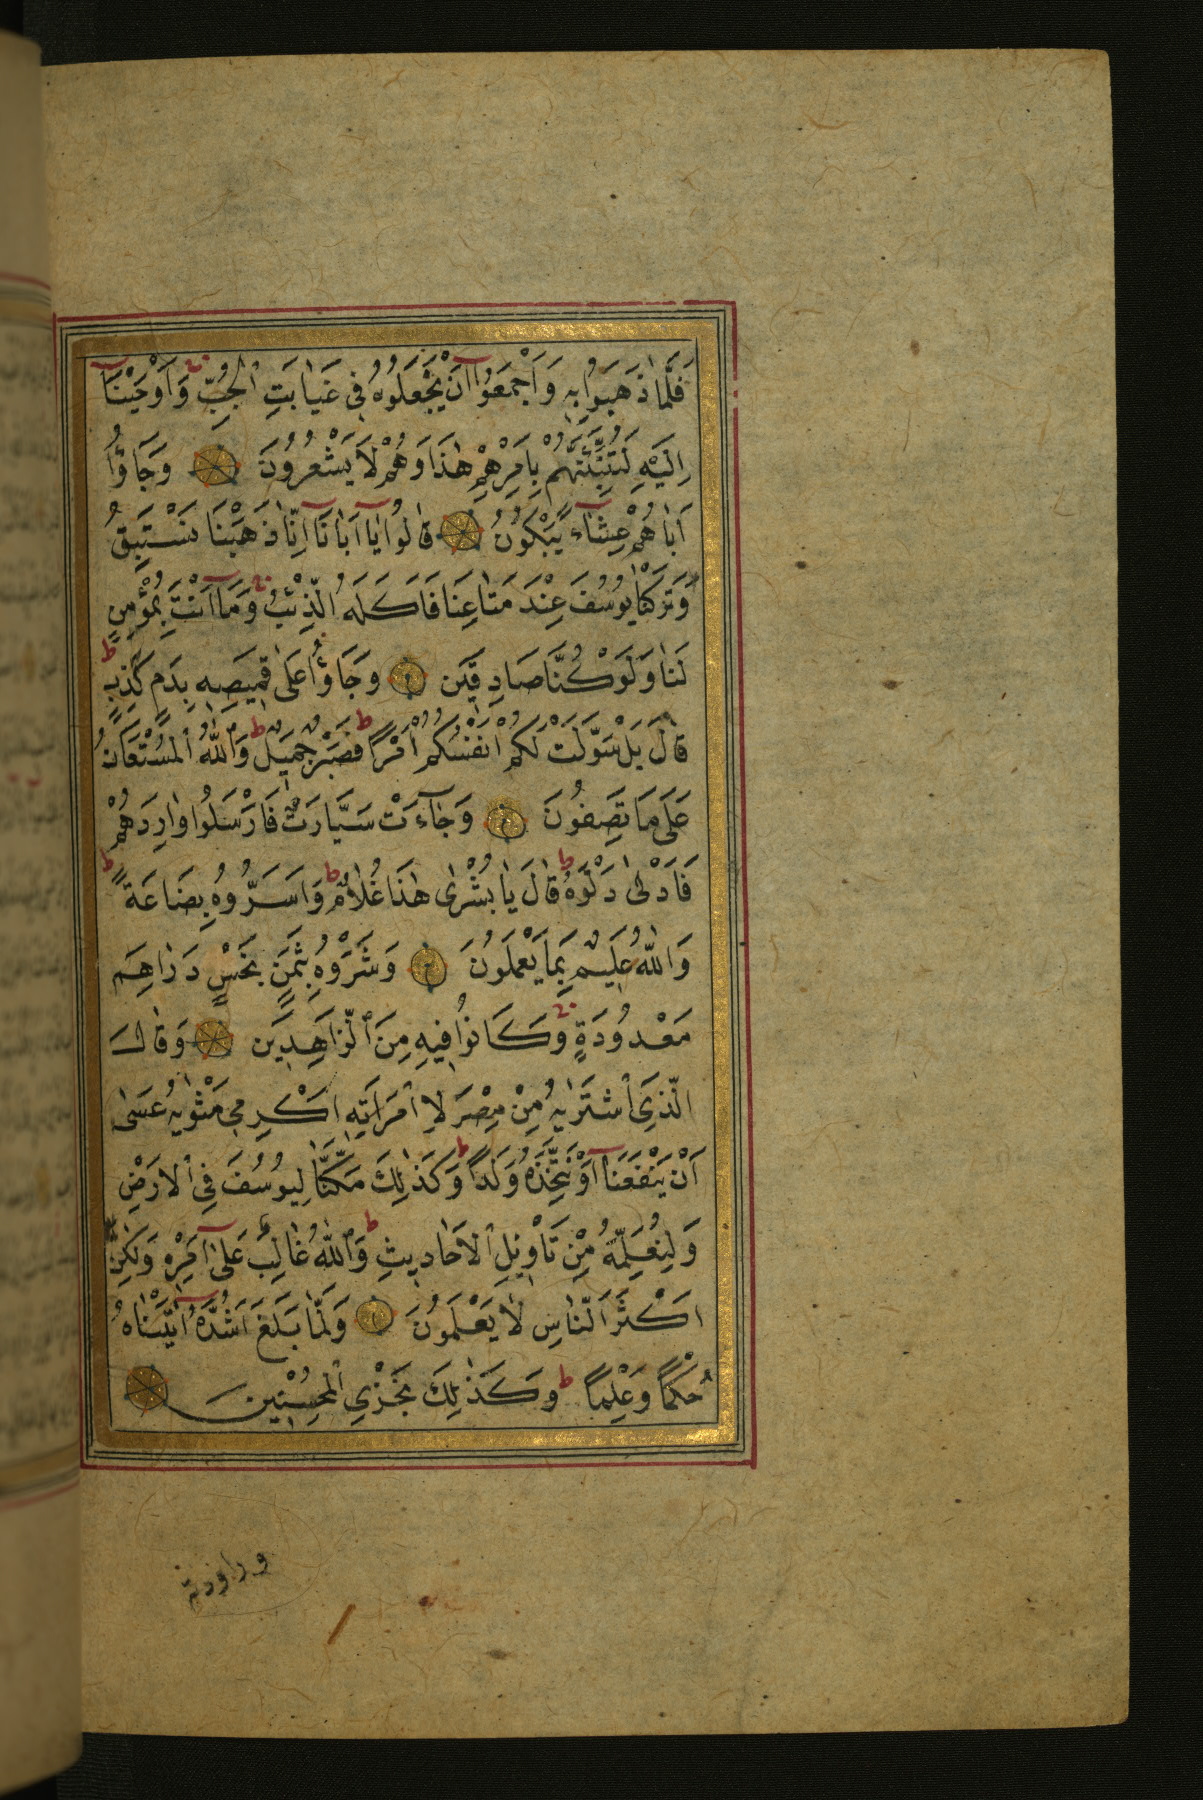 فَلَمَّا ذَهَبُوا بِهِ وَاَجْمَعُوا اَنْ يَجْعَلُوهُ فِي غَيَابَتِ الْجُبِّ وَاَوْحَيْنَا
اِلَيْهِ لَتُنَبِّئَنَّهُمْ بِاَمْرِهِمْ هٰذَا وَهُمْ لَا يَشْعُرُونَ وَجَاؤُا
اَبَاهُمْ عِشَاءً يَبْكُونَ قَالُوا يَا اَبَانَا اِنَّا ذَهَبْنَا نَسْتَبِقُ
وَتَرَكْنَا يُوسُفَ عِنْدَ مَتَاعِنَا فَاَكَلَهُ الذِّئْبُ وَمَا اَنْتَ بِمُؤْمِنٍ
لَنَا وَلَوْ كُنَّا صَادِقِينَ وَجَاؤُا عَلٰى قَمِيصِهِ بِدَمٍ كَذِبٍ ط
قَالَ بَلْ سَوَّلَتْ لَكُمْ اَنْفُسُكُمْ اَمْرًا ط فَصَبْرٌ جَمِيلٌ ط وَاللّٰهُ الْمُسْتَعَانُ
عَلٰى مَا تَصِفُونَ وَجَاءَتْ سَيَّارَتٌ فَاَرْسَلُوا وَارِدَهُمْ
فَاَدْلٰى دَلْوَهُ ط قَالَ يَا بُشْرٰى هٰذَا غُلَامٌ ط وَاَسَرُّوهُ بِضَاعَةً ط
وَاللّٰهُ عَلِيمٌ بِمَا يَعْمَلُونَ وَشَرَوْهُ بِثَمَنٍ بَخْسٍ دَرَاهِمَ
مَعْدُودَةٍ وَكَانُوا فِيهِ مِنَ الزَّاهِدِينَ وَقَالَ
الَّذِي اشْتَرٰيهُ مِنْ مِصْرَ لِامْرَاَتِهِ اَكْرِمِي مَثْوٰيهُ عَسٰى
اَنْ يَنْفَعَنَا اَوْ نَتَّخِذَهُ وَلَدًا ط وَكَذٰلِكَ مَكَّنَّا لِيُوسُفَ فِي الْاَرْضِ
وَلِنُعَلِّمَهُ مِنْ تَاْوِيلِ الْاَحَادِيثِ ط وَاللّٰهُ غَالِبٌ عَلٰى اَمْرِهِ وَلٰكِنَّ
اَكْثَرَ النَّاسِ لَا يَعْلَمُونَ وَلَمَّا بَلَغَ اَشُدَّهُ اٰتَيْنَاهُ
حُكْمًا وَعِلْمًا ط وَكَذٰلِكَ نَجْزِي الْمُحْسِنِينَ
وراودته